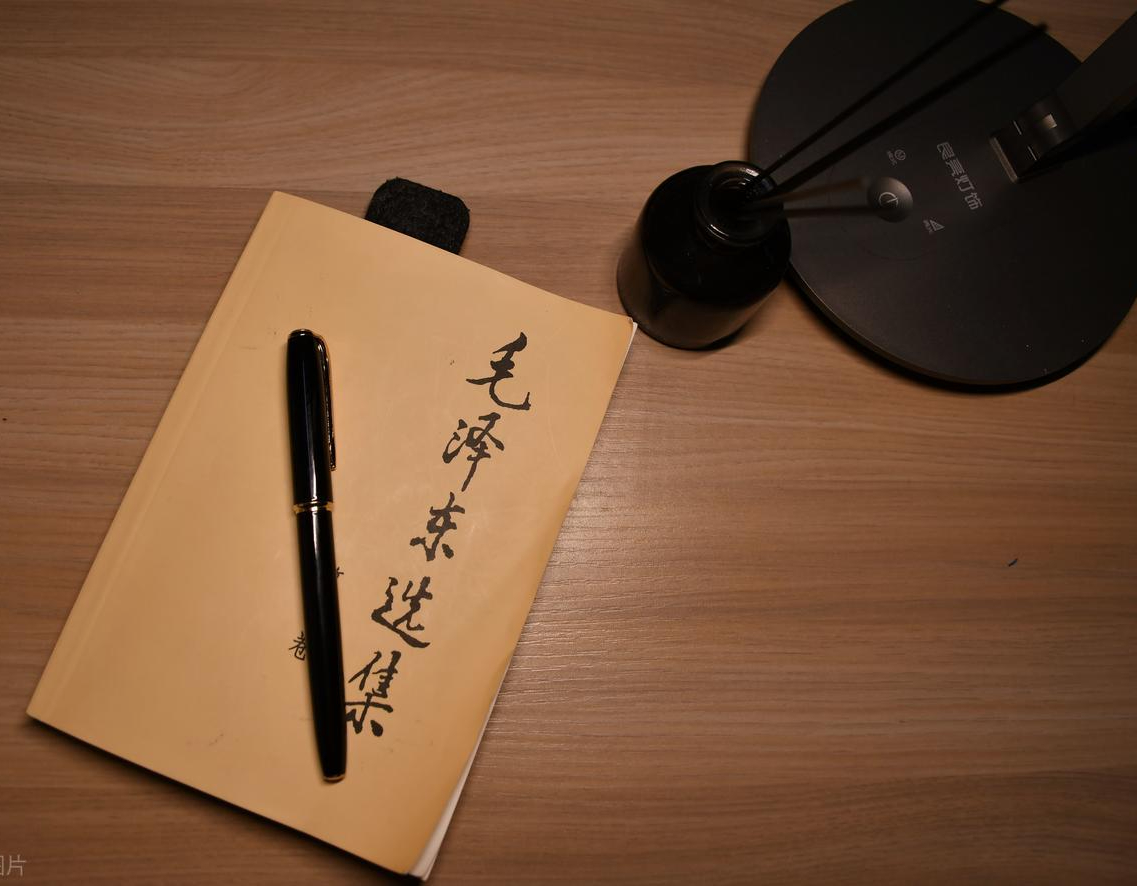 毛泽东选集
卷
良亮灯饰
图片